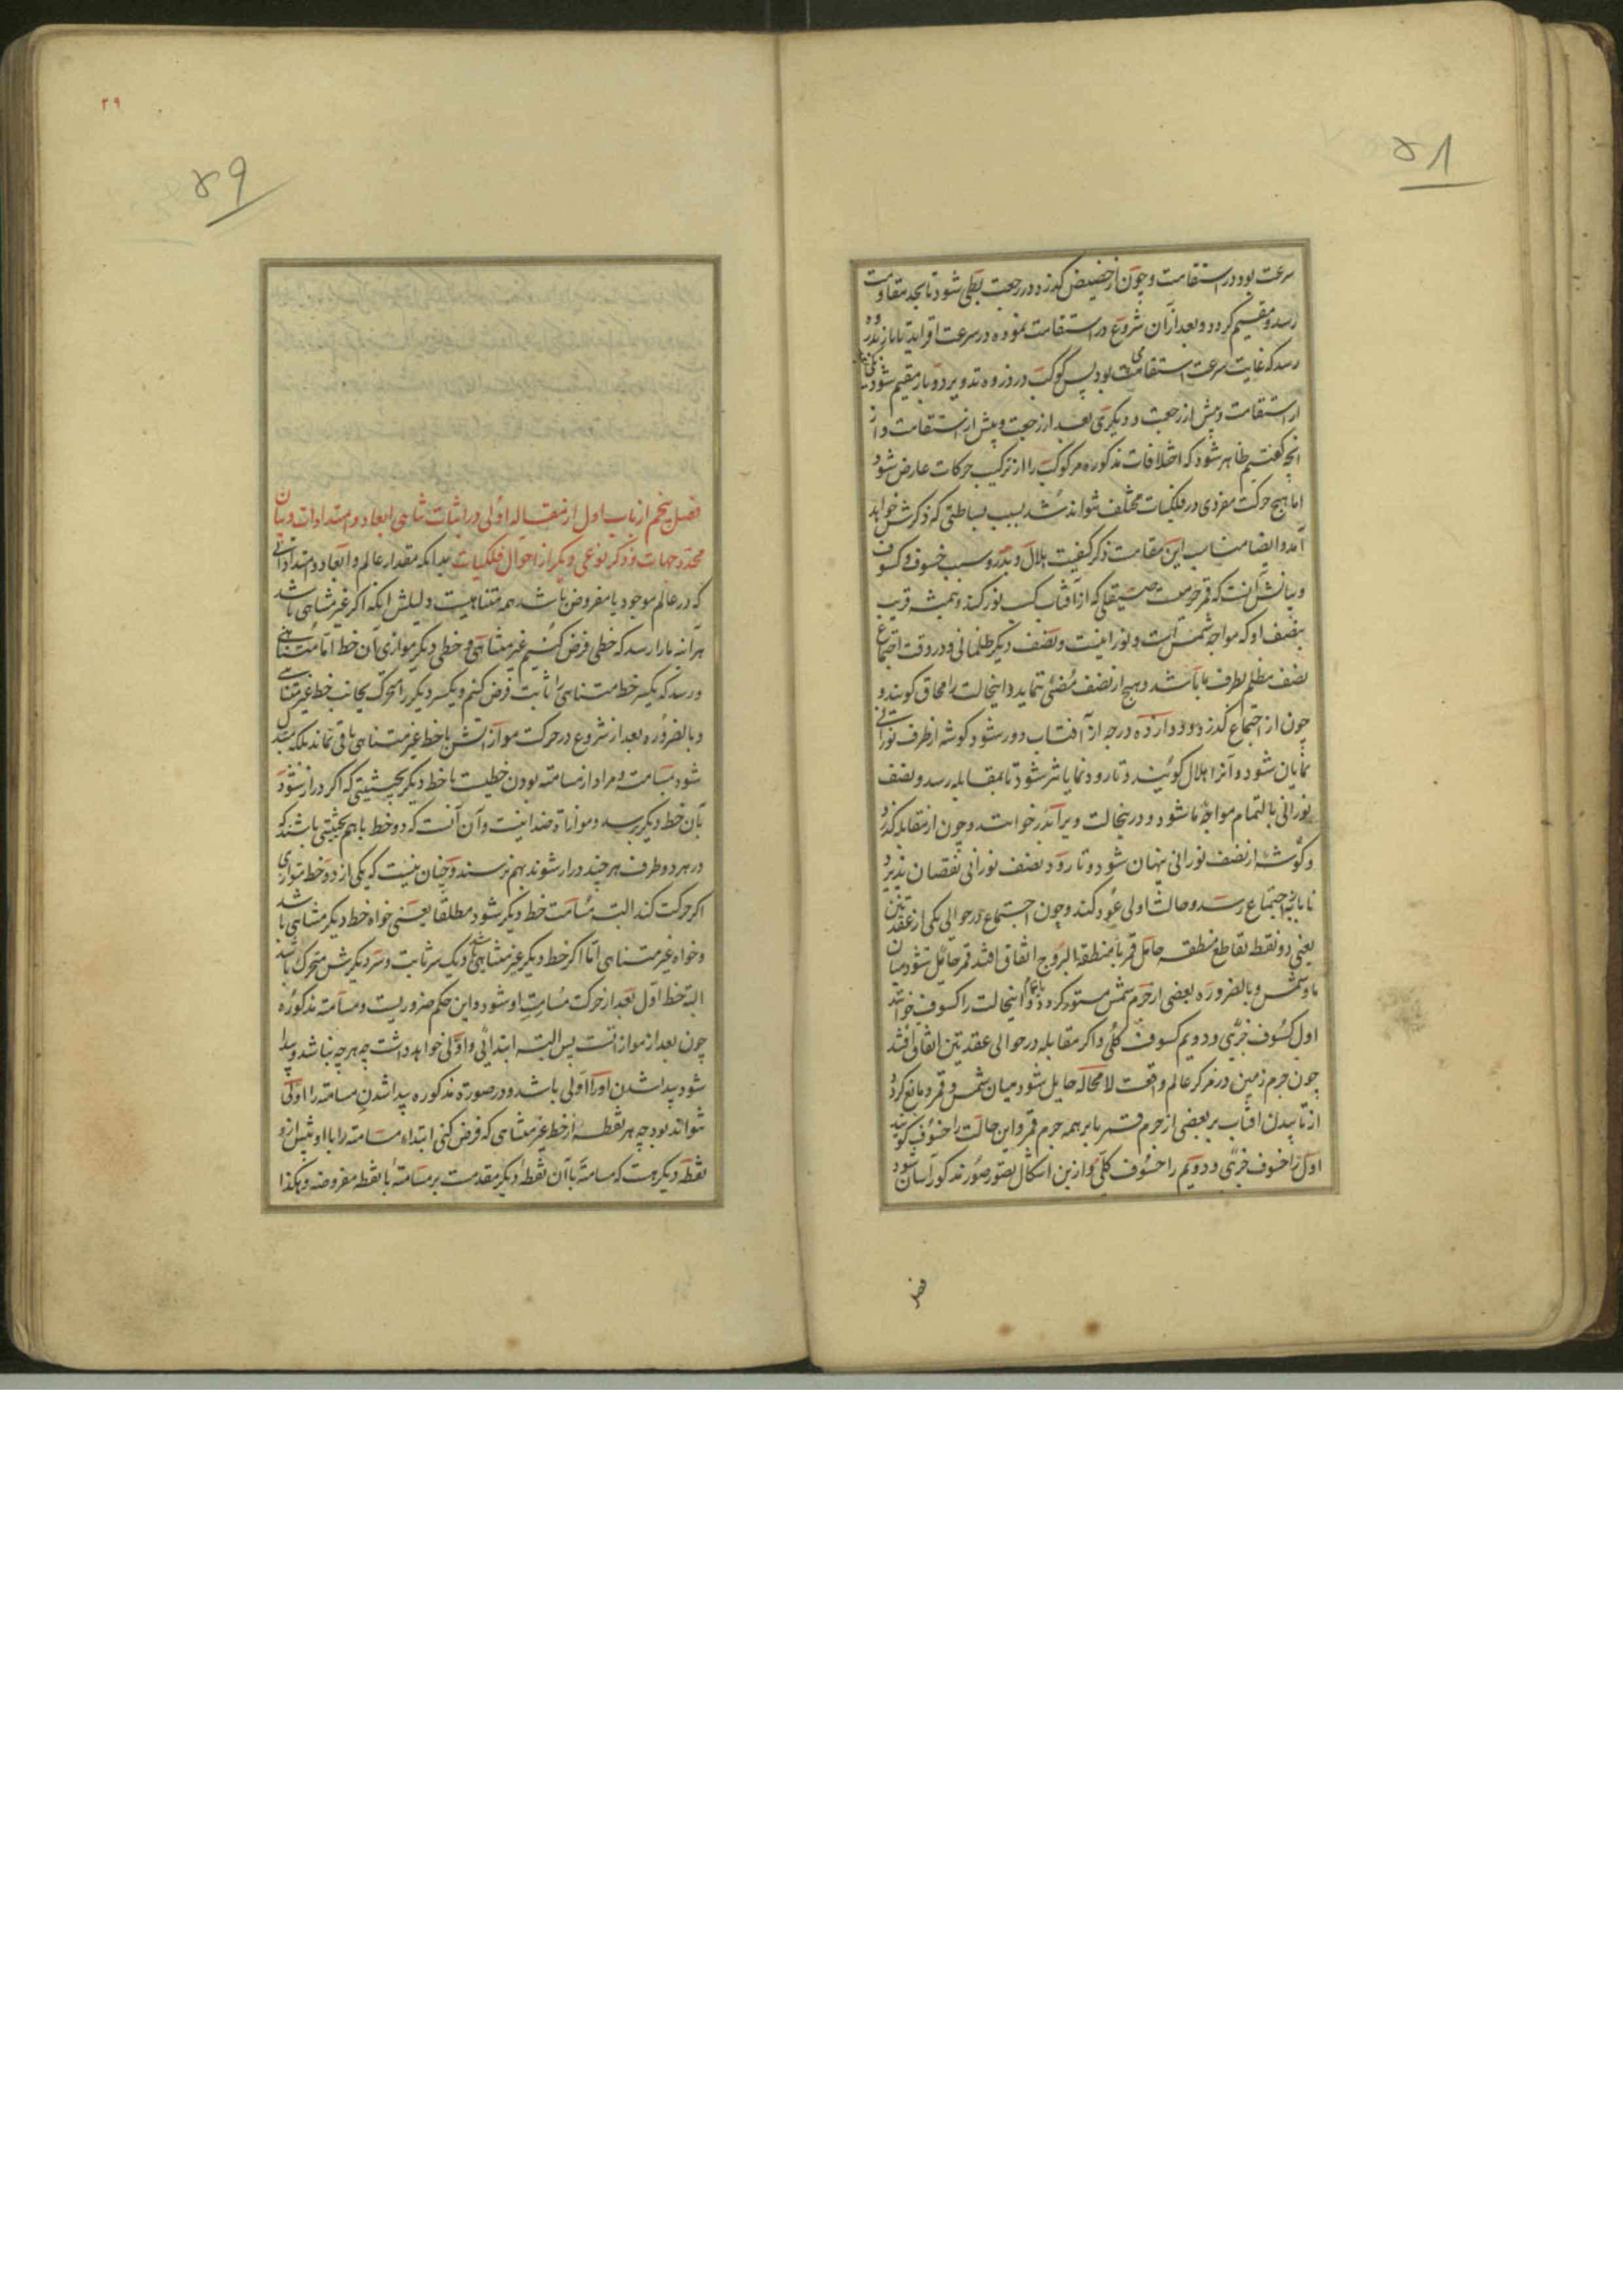 ۵۸
سرعت بود در استقامت و چون از حضیض گذرد در رجعت بطی شود تا بحد مقاومت
رسد و مقیم گردد و بعد از آن شروع در استقامت نموده در سرعت افزاید تا باز بذروه
رسد که غایت سرعت استقامت بود پس کوکب در ذروه تدویر دو بار مقیم شود یکی بعد
از استقامت و پیش از رجعت و دیگری بعد از رجعت و پیش از استقامت و از
آنچه گفتیم ظاهر شود که اختلافات مذکوره مر کوکب را از ترکیب حرکات عارض شود
اما هیچ حرکت مفردی در فلکیات مختلف نتواند شد بسبب بساطتی که ذکرش خواهد
آمد و ایضا مناسب این مقامست ذکر کیفیت هلال و بدر و سبب خسوف و کسوف
و بیانش آنست که قمر جرمیست صیقلی که از آفتاب کسب نور کند و همیشه قریب
بنصف او که مواجه شمس است نورانیست و نصف دیگر ظلمانی و در وقت اجتماع
نصف مظلم بطرف ما باشد و هیچ از نصف مضئی ننماید و اینحالت را محاق گویند و
چون از اجتماع گذرد و دوازده درجه از آفتاب دور شود گوشه از طرف نورانی
نمایان شود و آنرا هلال گویند و تا رود نمایانتر شود تا بمقابله رسد و نصف
نورانی بالتمام مواجه ما شود و درینحالت ویرا بدر خوانند و چون از مقابله گذرد
و گوشه از نصف نورانی پنهان شود و تا رود نصف نورانی نقصان پذیرد
تا باز باجتماع رسد و حالت اولی عود کند و چون اجتماع در حوالی یکی از عقدتین
یعنی دو نقطه تقاطع منطقه حامل قمر با منطقة البروج اتفاق افتد قمر حائل شود میان
ما و شمس و بالضروره بعضی از جرم شمس مستور گردد یا تمام و اینحالت را کسوف خوانند
اول کسوف جزئی و دویم کسوف کلی و اگر مقابله در حوالی عقدتین اتفاق افتد
چون جرم زمین در مرکز عالم واقعست لامحاله حایل شود میان شمس و قمر و مانع گردد
از تابیدن افتاب بر بعضی از جرم قمر یا بر همه جرم قمر و این حالت را خسوف گویند
اول را خسوف جزئی و دویم را خسوف کلی و ازین اشکال تصور صور مذکور آسان شود
فصل
۲۹
۵۹
فصل پنجم از باب اول از مقاله اولی در اثبات تناهی ابعاد و امتدادات و بیان
محدد جهات و ذکر نوعی دیگر از احوال فلکیات بدانکه مقدار عالم و ابعاد و امتداداتی
که در عالم موجود یا مفروض باشد همه متناهیست دلیلش آنکه اگر غیر متناهی باشد
هر آینه ما را رسد که خطی فرض کنیم غیر متناهی و خطی دیگر موازی آن خط اما متناهی
و رسد که یکسر خط متناهی را ثابت فرض کنم و یکسر دیگر را متحرک بجانب خط غیر متناهی
و بالضروره بعد از شروع در حرکت موازاتش با خط غیر متناهی باقی نماند بلکه مبدل
شود بمسامته و مراد از مسامته بودن خطیست با خط دیگر بحیثیتی که اگر دراز شود
بآن خط دیگر برسد و موازاة ضد اینست و آن آنست که دو خط با هم بحیثیتی باشند که
در هر دو طرف هر چند دراز شوند بهم نرسند و چنان نیست که یکی از دو خط متوازی
اگر حرکت کند البته مسامت خط دیگر شود مطلقا یعنی خواه خط دیگر متناهی باشد
و خواه غیر متناهی اما اگر خط دیگر غیر متناهی باشد و یک سر ثابت و سر دیگرش متحرک باشد
البته خط اول بعد از حرکت مسامت او شود و این حکم ضروریست و مسامته مذکوره
چون بعد از موازاتست پس البته ابتدائی و اولی خواهد داشت چه هر چه نباشد و پیدا
شود پیدا شدن او را اولی باشد و در صورة مذکوره پیدا شدن مسامته را اولی
نتواند بود چه هر نقطه از خط غیر متناهی که فرض کنی ابتداء مسامته را با او پیش ازو
نقطه دیگر هست که مسامته با آن نقطه دیگر مقدمست بر مسامته با نقطه مفروضه و هکذا